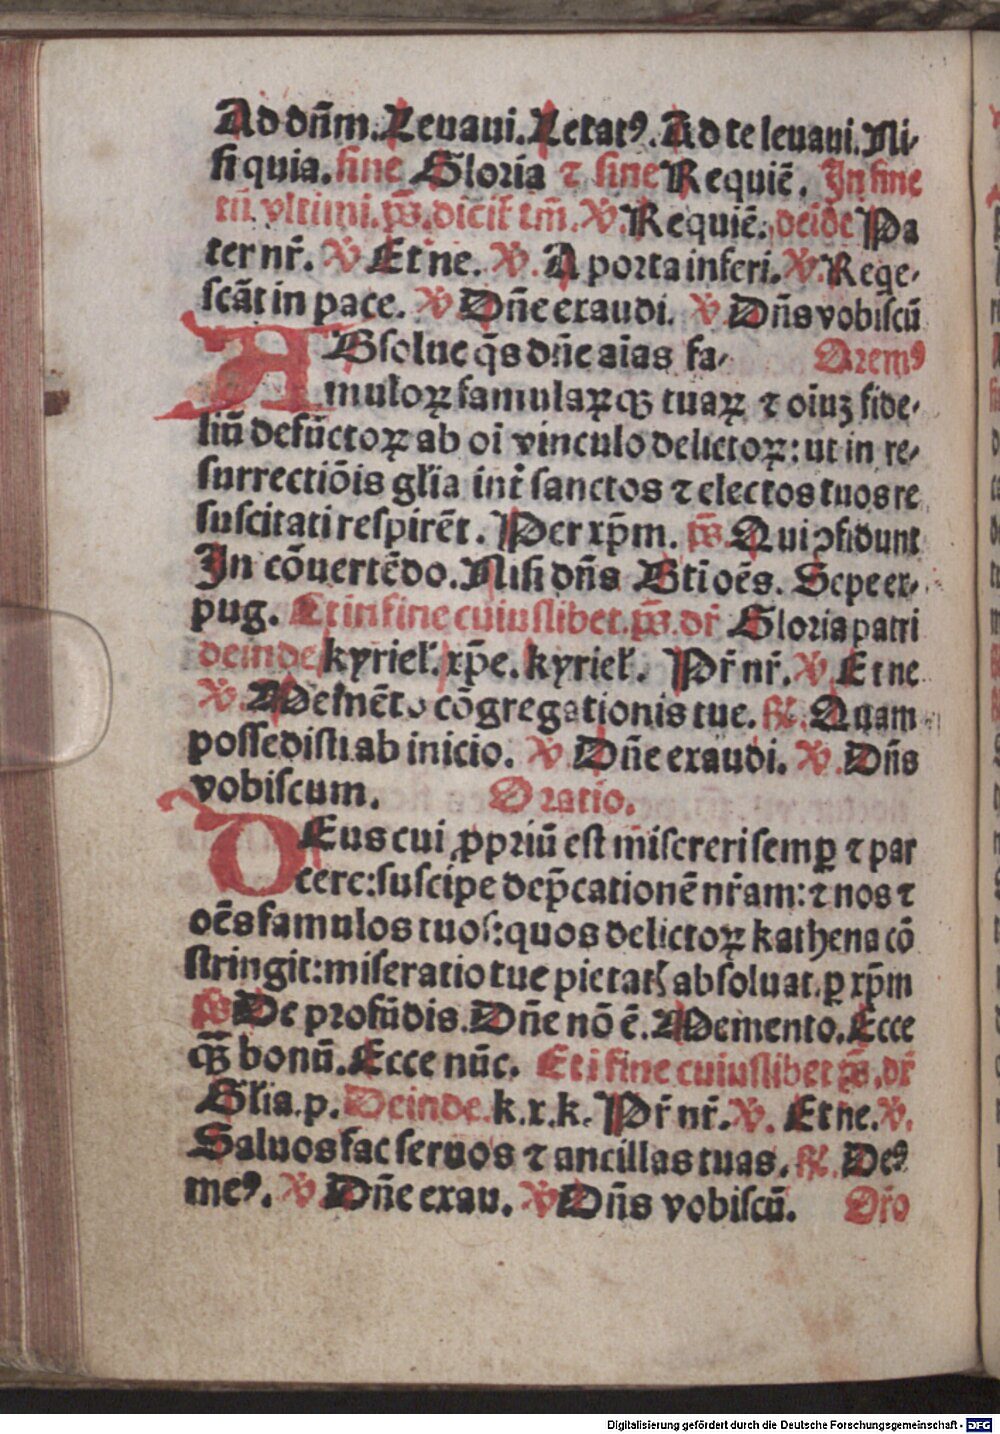 Ad dn̄m. Leuaui. Letatꝰ. Ad te leuaui. Ni-
si quia. sine Gloria ⁊ sine Requiē. In fine
tn̄. vltimi. ps̄. dicit̉ tm̄. ℣. Requiē. deīde Pa
ter nr̄. ℣ Et ne. ℣. A porta inferi. ℣. Reqe-
scāt in pace. ℣ Dn̄e exaudi. ℣ Dn̄s vobiscū
ABsolue q̄s dn̄e aīas fa- Oremꝰ
muloꝝ famulaꝝqꝫ tuaꝝ ⁊ oīuꝫ fide-
liū defūctoꝝ ab oī vinculo delictoꝝ: ut in re-
surrectiōis gl̄ia int̉ sanctos ⁊ electos tuos re
suscitati respirēt. Per xp̄m. ps̄. Qui ꝯfidunt
In cōuertēdo. Nisi dn̄s Bt̄i oēs. Sepe ex-
pug. Et in fine cuiuslibet. ps̄. dr̄ Gloria patri
deinde kyriel̄. xp̄e. kyriel̄. Pr̄ nr̄. ℣ Et ne
℣. Memēto cōgregationis tue. ℟. Quam
possedisti ab inicio. ℣ Dn̄e exaudi. ℣. Dn̄s
vobiscum. Oratio.
DEus cui ꝓpriū est misereri semꝑ ⁊ par
cere: suscipe dep̄cationē nr̄am: ⁊ nos ⁊
oēs famulos tuos: quos delictoꝝ kathena cō
stringit: miseratio tue pietatꝭ absoluat. ꝑ xp̄m
ps̄ De profūdis. Dn̄e nō ē. Memento. Ecce
qꝫ̄ bonū. Ecce nūc. Et ī fine cuiuslibet ps̄. dr̄
Gl̄ia. p. Deinde. k. x. k. Pr̄ nr̄. ℣. Et ne. ℣.
Saluos fac seruos ⁊ ancillas tuas. ℟. Deꝰ
meꝰ. ℣ Dn̄e exau. ℣ Dn̄s vobiscū. Or̄o
Digitalisierung gefördert durch die Deutsche Forschungsgemeinschaft - DFG